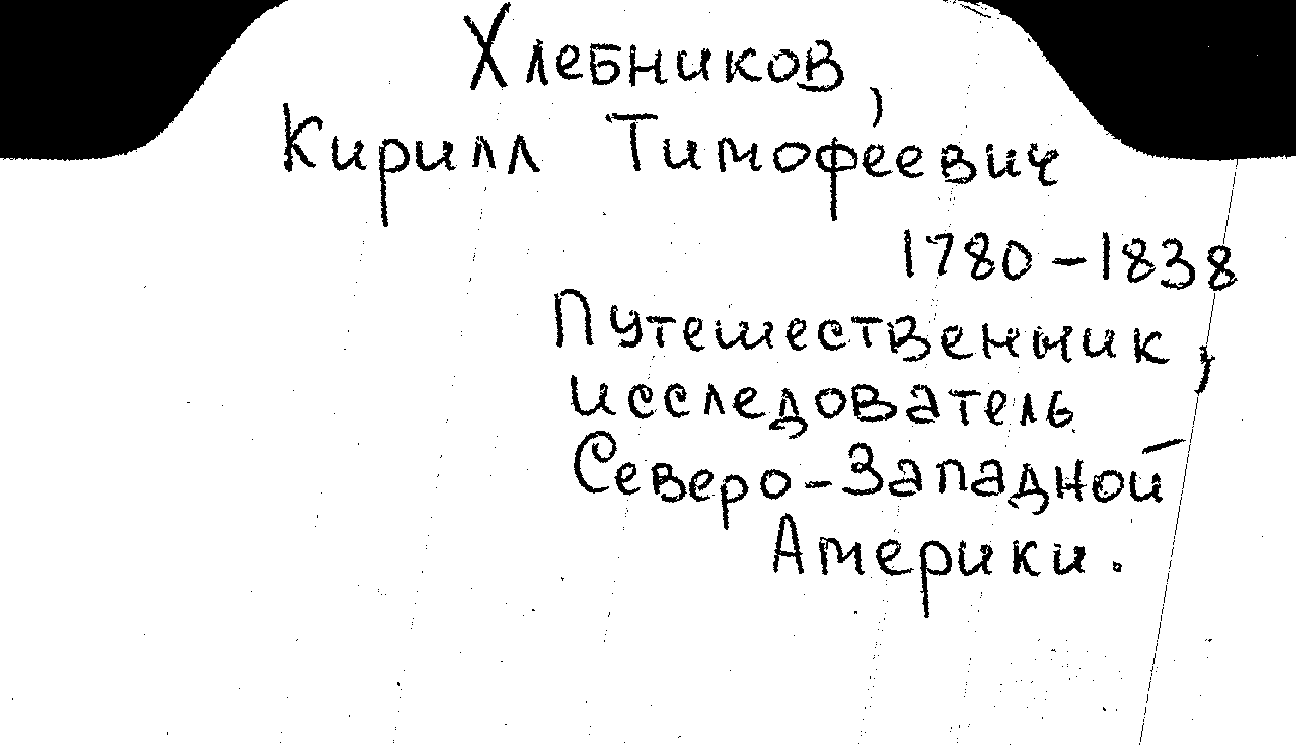 Хлебников,
Кирилл Тимофеевич
1780-1838
Путешественник,
исследователь
Северо-Западной
Америки.